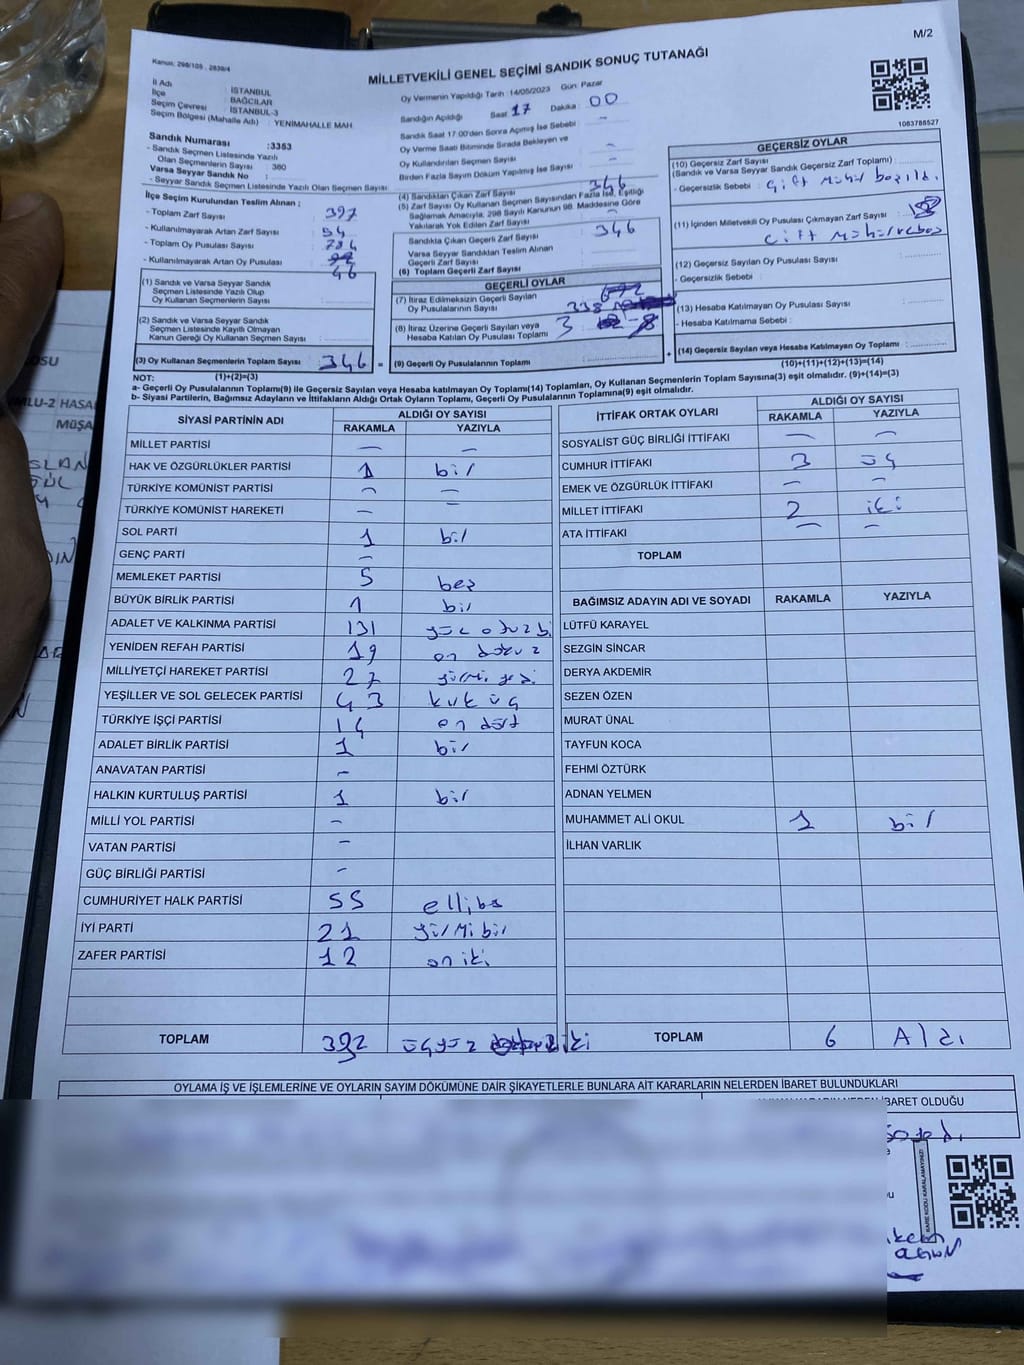 M/2
Kanun: 298/105 , 2839/4
MİLLETVEKİLİ GENEL SEÇİMİ SANDIK SONUÇ TUTANAĞI
İl Adı : İSTANBUL
İlçe : BAĞCILAR
Seçim Çevresi : İSTANBUL-3
Seçim Bölgesi (Mahalle Adı) : YENİMAHALLE MAH.
Sandık Numarası :3353
- Sandık Seçmen Listesinde Yazılı
Olan Seçmenlerin Sayısı : 380
Varsa Seyyar Sandık No :
- Seyyar Sandık Seçmen Listesinde Yazılı Olan Seçmen Sayısı :
İlçe Seçim Kurulundan Teslim Alınan ;
- Toplam Zarf Sayısı : 397
- Kullanılmayarak Artan Zarf Sayısı : 54
- Toplam Oy Pusulası Sayısı : 784
- Kullanılmayarak Artan Oy Pusulası : 46
(1) Sandık ve Varsa Seyyar Sandık
Seçmen Listesinde Yazılı Olup
Oy Kullanan Seçmenlerin Sayısı :
(2) Sandık ve Varsa Seyyar Sandık
Seçmen Listesinde Kayıtlı Olmayan
Kanun Gereği Oy Kullanan Seçmen Sayısı :
(3) Oy Kullanan Seçmenlerin Toplam Sayısı : 346
(1)+(2)=(3)
Oy Vermenin Yapıldığı Tarih : 14/05/2023 Gün: Pazar
Sandığın Açıldığı Saat 17 Dakika : 00
Sandık Saat 17:00'den Sonra Açılmış İse Sebebi :
Oy Verme Saati Bitiminde Sırada Bekleyen ve
Oy Kullandırılan Seçmen Sayısı :
Birden Fazla Sayım Döküm Yapılmış İse Sayısı :
(4) Sandıktan Çıkan Zarf Sayısı : 346
(5) Zarf Sayısı Oy Kullanan Seçmen Sayısından Fazla İse, Eşitliği
Sağlamak Amacıyla, 298 Sayılı Kanunun 98. Maddesine Göre
Yakılarak Yok Edilen Zarf Sayısı :
Sandıkta Çıkan Geçerli Zarf Sayısı : 346
Varsa Seyyar Sandıktan Teslim Alınan
Geçerli Zarf Sayısı :
(6) Toplam Geçerli Zarf Sayısı
GEÇERLİ OYLAR
(7) İtiraz Edilmeksizin Geçerli Sayılan
Oy Pusulalarının Sayısı : 338
(8) İtiraz Üzerine Geçerli Sayılan veya
Hesaba Katılan Oy Pusulası Toplamı : 3
= (9) Geçerli Oy Pusulalarının Toplamı :
1083788527
GEÇERSİZ OYLAR
(10) Geçersiz Zarf Sayısı
(Sandık ve Varsa Seyyar Sandık Geçersiz Zarf Toplamı) :
- Geçersizlik Sebebi : Çift Mühür basıldı.
(11) İçinden Milletvekili Oy Pusulası Çıkmayan Zarf Sayısı :
(12) Geçersiz Sayılan Oy Pusulası Sayısı :
- Geçersizlik Sebebi :
(13) Hesaba Katılmayan Oy Pusulası Sayısı :
- Hesaba Katılmama Sebebi :
+ (14) Geçersiz Sayılan veya Hesaba Katılmayan Oy Toplamı :
(10)+(11)+(12)+(13)=(14)
NOT:
a- Geçerli Oy Pusulalarının Toplamı(9) ile Geçersiz Sayılan veya Hesaba katılmayan Oy Toplamı(14) Toplamları, Oy Kullanan Seçmenlerin Toplam Sayısına(3) eşit olmalıdır. (9)+(14)=(3)
b- Siyasi Partilerin, Bağımsız Adayların ve İttifakların Aldığı Ortak Oyların Toplamı, Geçerli Oy Pusulalarının Toplamına(9) eşit olmalıdır.
SİYASİ PARTİNİN ADI ALDIĞI OY SAYISI
RAKAMLA YAZIYLA
MİLLET PARTİSİ — —
HAK VE ÖZGÜRLÜKLER PARTİSİ 1 bir
TÜRKİYE KOMÜNİST PARTİSİ — —
TÜRKİYE KOMÜNİST HAREKETİ — —
SOL PARTİ 1 bir
GENÇ PARTİ —
MEMLEKET PARTİSİ 5 beş
BÜYÜK BİRLİK PARTİSİ 1 bir
ADALET VE KALKINMA PARTİSİ 131 yüz otuz bi
YENİDEN REFAH PARTİSİ 19 on dokuz
MİLLİYETÇİ HAREKET PARTİSİ 27 yirmi yedi
YEŞİLLER VE SOL GELECEK PARTİSİ 43 kırk üç
TÜRKİYE İŞÇİ PARTİSİ 14 on dört
ADALET BİRLİK PARTİSİ 1 bir
ANAVATAN PARTİSİ —
HALKIN KURTULUŞ PARTİSİ 1 bir
MİLLİ YOL PARTİSİ —
VATAN PARTİSİ —
GÜÇ BİRLİĞİ PARTİSİ —
CUMHURİYET HALK PARTİSİ 55 ellibeş
İYİ PARTİ 21 yirmi bir
ZAFER PARTİSİ 12 on iki
TOPLAM 332 üçyüz iki
İTTİFAK ORTAK OYLARI ALDIĞI OY SAYISI
RAKAMLA YAZIYLA
SOSYALİST GÜÇ BİRLİĞİ İTTİFAKI — —
CUMHUR İTTİFAKI 3 üç
EMEK VE ÖZGÜRLÜK İTTİFAKI — —
MİLLET İTTİFAKI 2 iki
ATA İTTİFAKI — —
TOPLAM
BAĞIMSIZ ADAYIN ADI VE SOYADI RAKAMLA YAZIYLA
LÜTFÜ KARAYEL
SEZGİN SİNCAR
DERYA AKDEMİR
SEZEN ÖZEN
MURAT ÜNAL
TAYFUN KOCA
FEHMİ ÖZTÜRK
ADNAN YELMEN
MUHAMMET ALİ OKUL 1 bir
İLHAN VARLIK
TOPLAM 6 Altı
OYLAMA İŞ VE İŞLEMLERİNE VE OYLARIN SAYIM DÖKÜMÜNE DAİR ŞİKAYETLERLE BUNLARA AİT KARARLARIN NELERDEN İBARET BULUNDUKLARI
İBARET OLDUĞU
KARE KODU KARALAMAYINIZ!